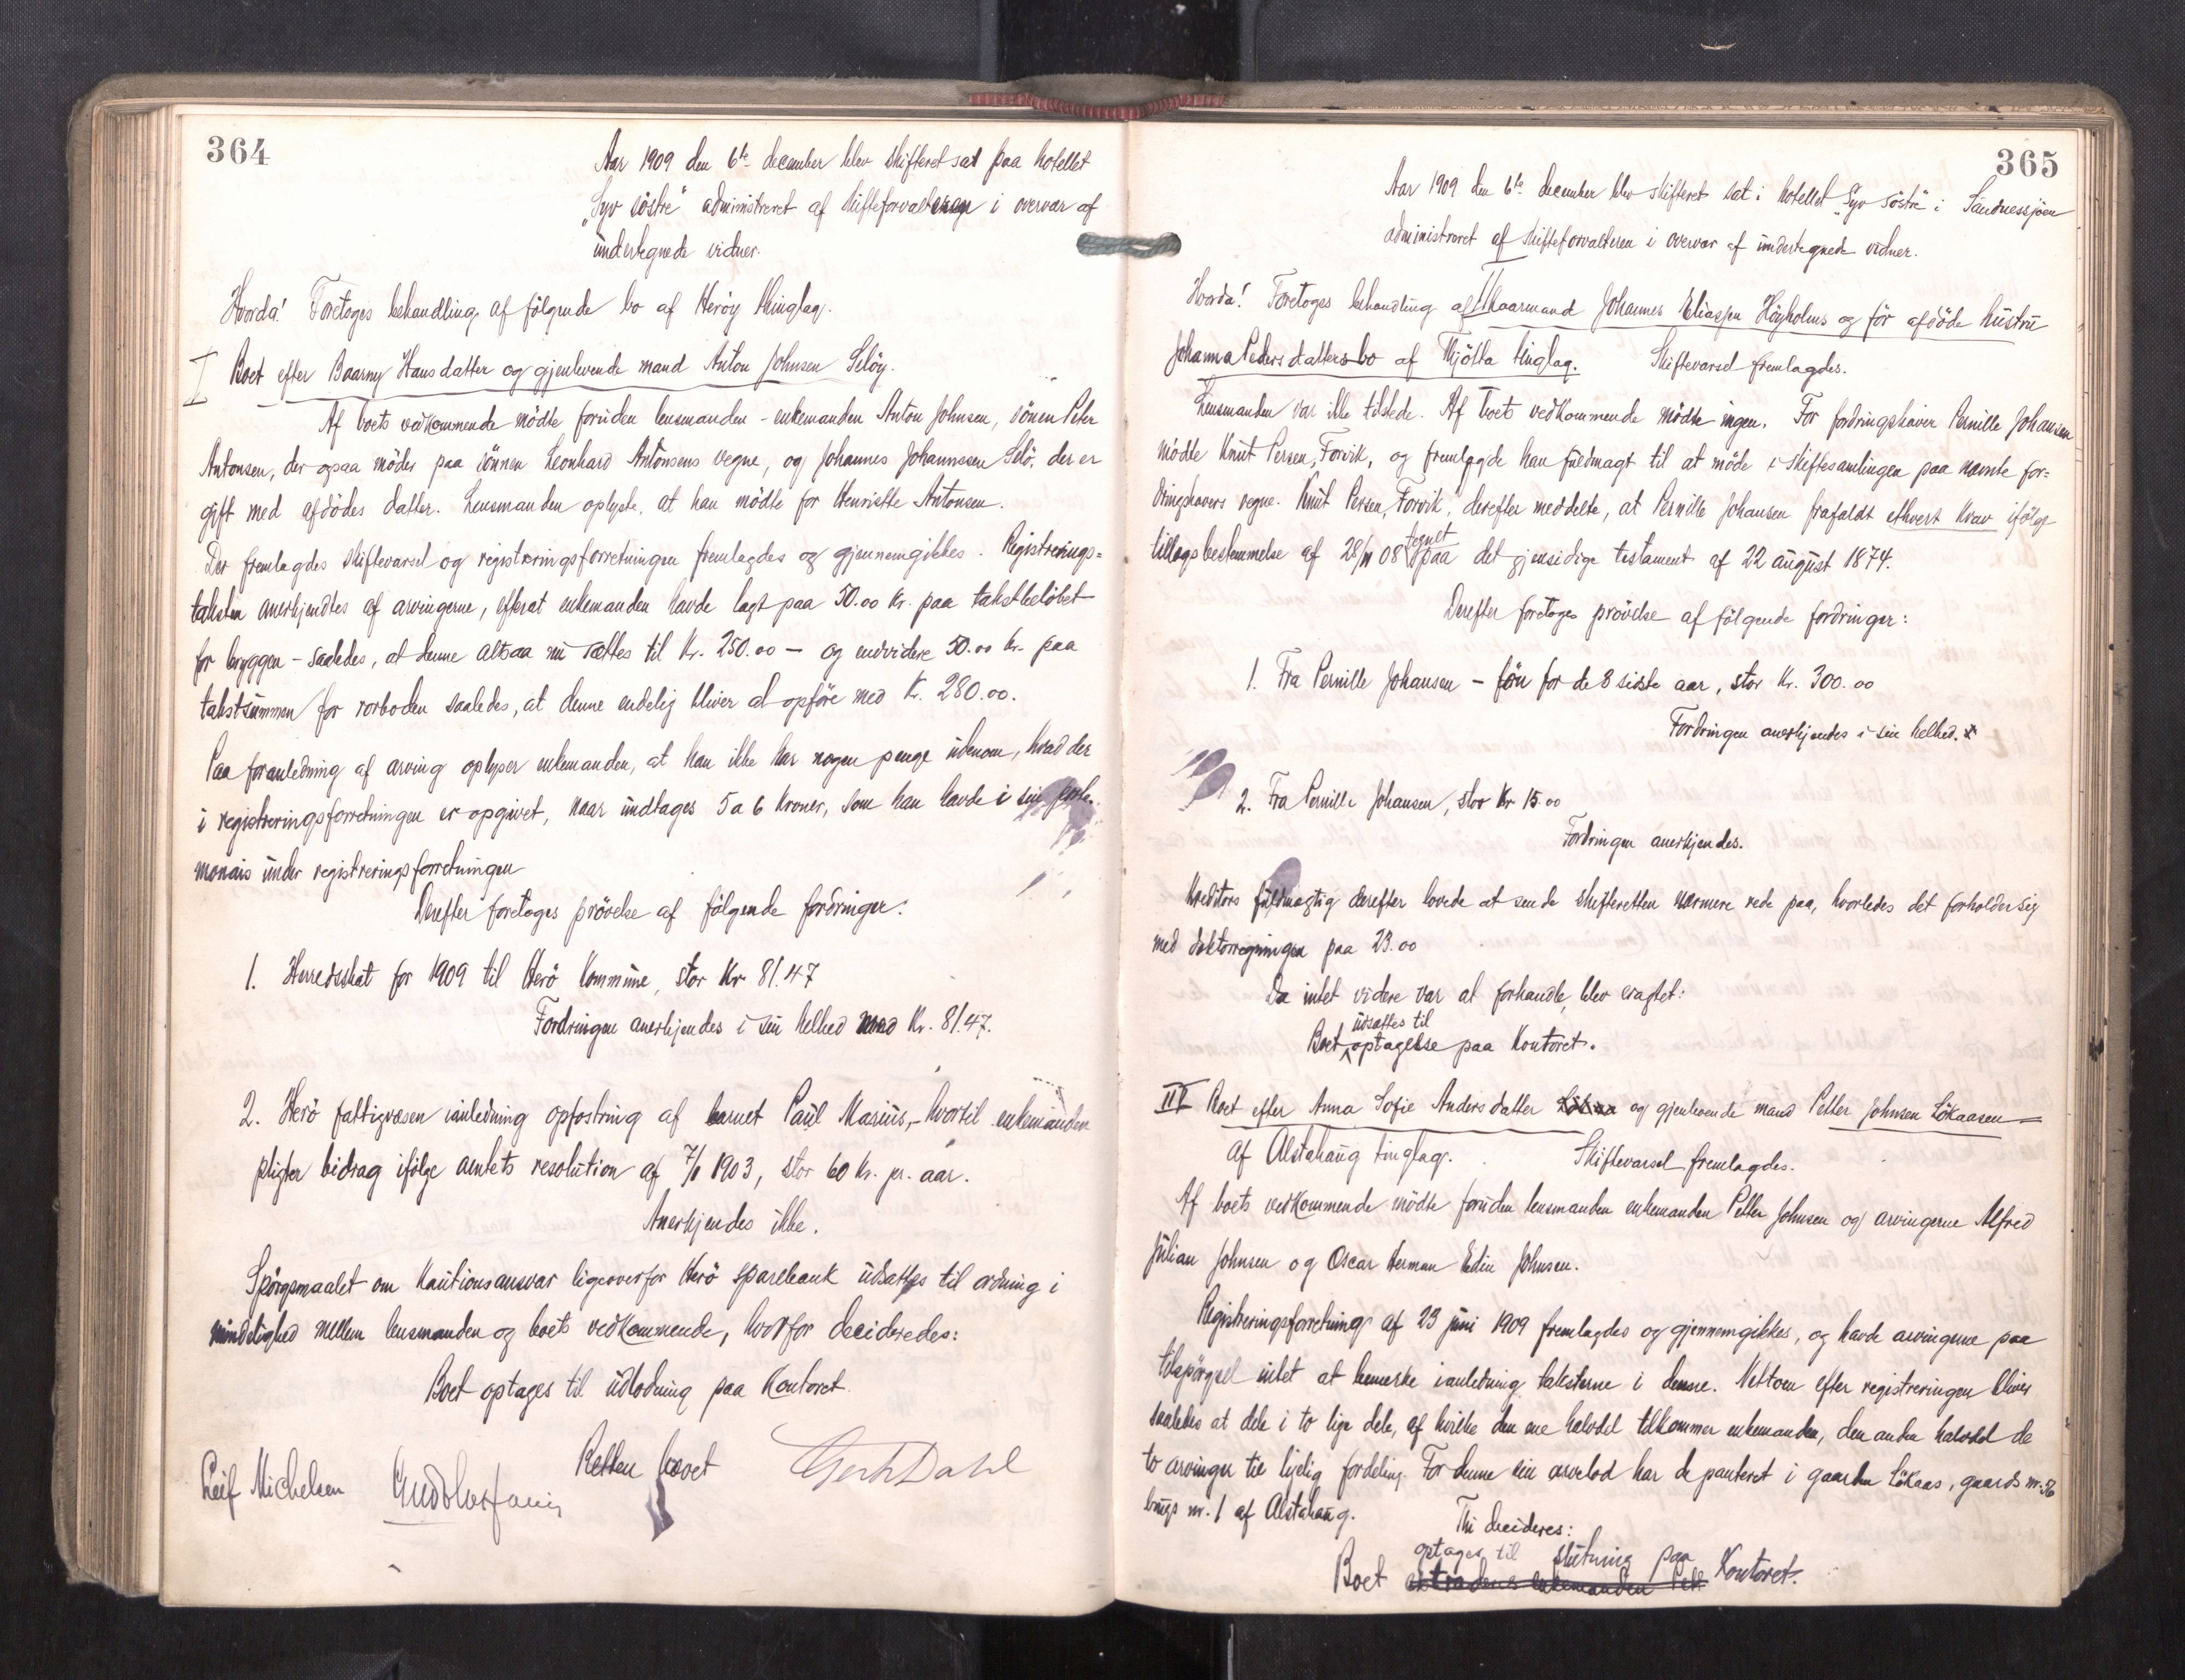 364
Aar 1909 den 6te december blev skifteret sat paa hotellet
„Syv søstre" administreret af skifteforvalteren i overvær af
undertegnede vidner.
Hvorda! Foretoges behandling af følgende bo af Herøy thinglag.
I Boet efter Baarny Hansdatter og gjenlevende mand Anton Johnsen Seløy.
Af boets vedkommende mødte foruden lensmanden – enkemanden Anton Johnsen, sønen Peter
Antonsen, der ogsaa møder paa sønnen Leonhard Antonsens vegne, og Johannes Johannesen Selö, der er
gift med afdødes datter. Lensmanden oplyste, at han mødte for Henriette Antonsen.
Der fremlagdes skiftevarsel og registreringsforretningen fremlagdes og gjennemgikkes. Registrerings=
taksten anerkjendtes af arvingerne, efterat enkemanden havde lagt paa 50.00 kr. paa takstbeløbet
for bryggen – saaledes, at denne altsaa nu sættes til Kr. 250.00 – og endvidere 50.00 kr. paa
takstsummen for rorboden saaledes, at denne endelig bliver at opføre med Kr. 280.00.
Paa foranledning af arving oplyser enkemanden, at han ikke har nogen penge udenom, hvad der
i registreringsforretningen er opgivet, naar undtages 5 a 6 kroner, som han havde i sin porte-
monais under registreringsforretningen
Derefter foretoges prøvelse af følgende fordringer:
1. Herredsskat for 1909 til Herö kommune, stor Kr 81.47
Fordringen anerkjendes i sin helhed med Kr. 81.47.
2. Herö fattigvæsen i anledning opfostring af barnet Paul Marius, – hvortil enkemanden
pligter bidrag ifølge amtets resolution af 1903, stor 60 Kr. pr. aar.
Anerkjendes ikke.
Spørgsmaalet om kautionsansvar ligeoverfor Herö sparebank udsattes til ordning i
mindelighed mellem lensmanden og boets vedkommende, hvorfor decideredes:
Boet optages til udlodning paa kontoret.
Retten hævet
Leif Michelsen Gerh Dahl
365
Aar 1909 den 6te december blev skifteret sat i hotellet „Syv søstre" i Sandnessjøen
administreret af skifteforvalteren i overvær af undertegnede vidner.
Hvorda! Foretoges behandling af II kaarmand Johannes Eliassen Høyholms og før afdøde hustru
Johanna Pedersdatters bo af Thjøtta tinglag. Skiftevarsel fremlagdes.
Lensmanden var ikke tilstede. Af boets vedkommende mødte ingen. For fordringshaver Pernille Johansen
mødte Knut Persen, Forvik, og fremlagde han fuldmagt til at møde i skiftesamlingen paa nævnte for=
dringshavers vegne. Knut Persen, Forvik, derefter meddelte, at Pernille Johansen frafaldt ethvert krav ifølge
tillægsbestemmelse af 28/11 08 tegnet paa det gjensidige testament af 22 august 1874.
Derefter foretoges prøvelse af følgende fordringer:
1. Fra Pernille Johansen – løn for de 8 sidste aar, stor Kr. 300.00
Fordringen anerkjendes i sin helhed.
2. Fra Pernille Johansen, stor Kr 15.00
Fordringen anerkjendes.
Kreditors fuldmægtig derefter lovede at sende skifteretten nærmere rede paa, hvorledes det forholder sig
med doktorregningen paa 23.00
Da intet videre var at forhandle, blev eragtet:
Boet udsættes til optagelse paa kontoret.
III Boet efter Anna Sofie Andersdatter og gjenlevende mand Petter Johnsen Lökaasen
af Alstahaug tinglag. Skiftevarsel fremlagdes.
Af boets vedkommende mødte foruden lensmanden enkemanden Petter Johnsen og arvingerne Alfred
Julian Johnsen og Oscar Herman Edin Johnsen.
Registreringsforretning af 23 juni 1909 fremlagdes og gjennemgikkes, og havde arvingerne paa
tilspørgsel intet at bemerke i anledning taksterne i denne. Nettoen efter registreringen bliver
saaledes at dele i to lige dele, af hvilke den ene halvdel tilkommer enkemanden, den anden halvdel de
to arvinger til ligelig fordeling. For denne sin arvelod har de panteret i gaarden Lökaas, gaards nr. 56
brugs nr. 1 af Alstahaug. Thi decideres:
Boet optages til slutning paa kontoret.